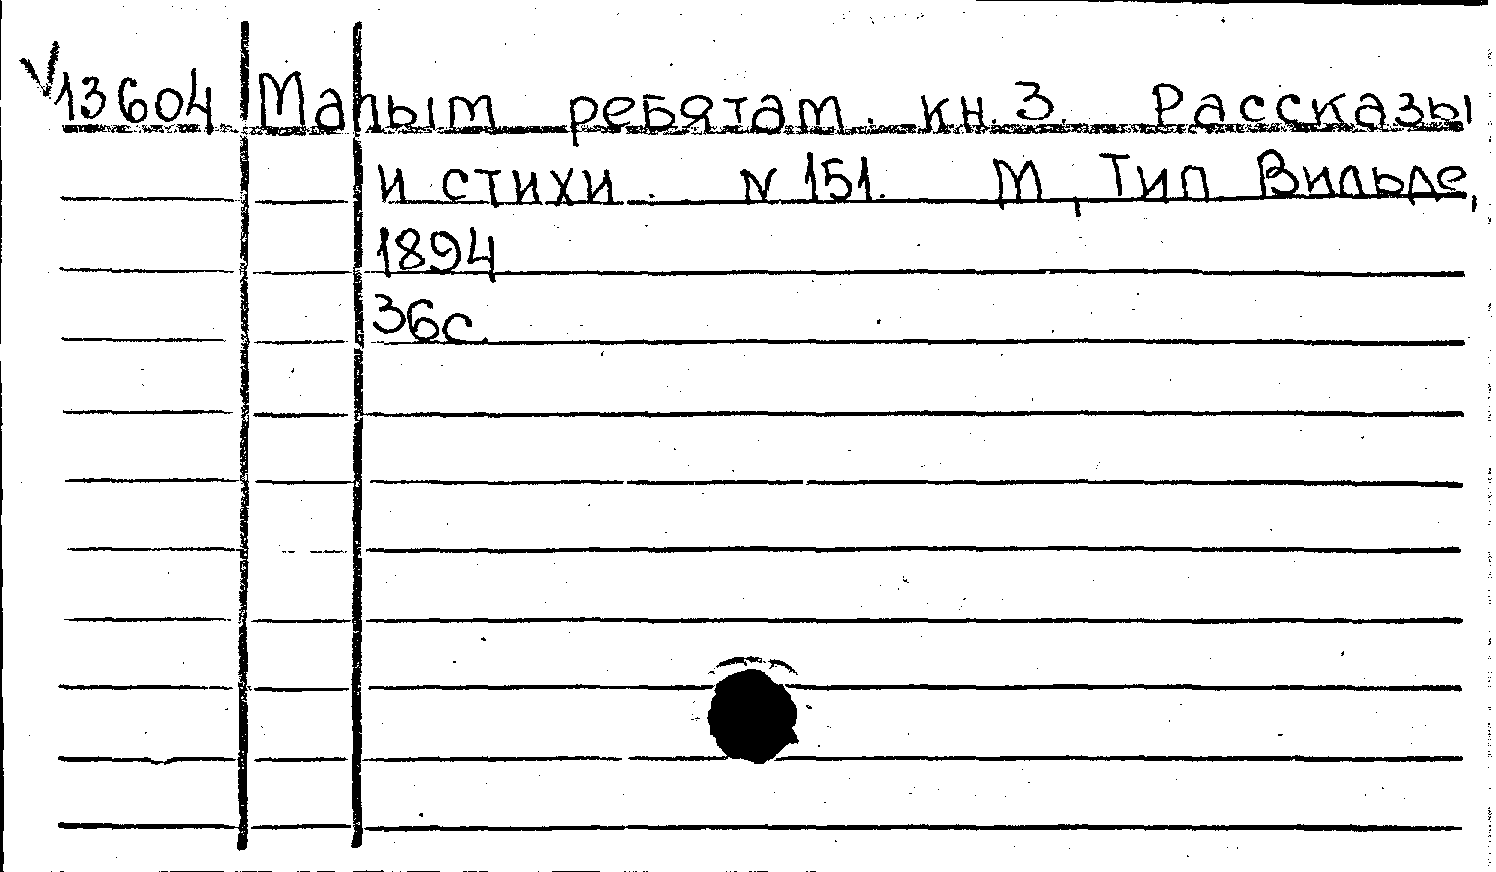 √13604 Малым ребятам. кн. 3. Рассказы
и стихи. N 151. М, Тип Вильде,
1894
36с.